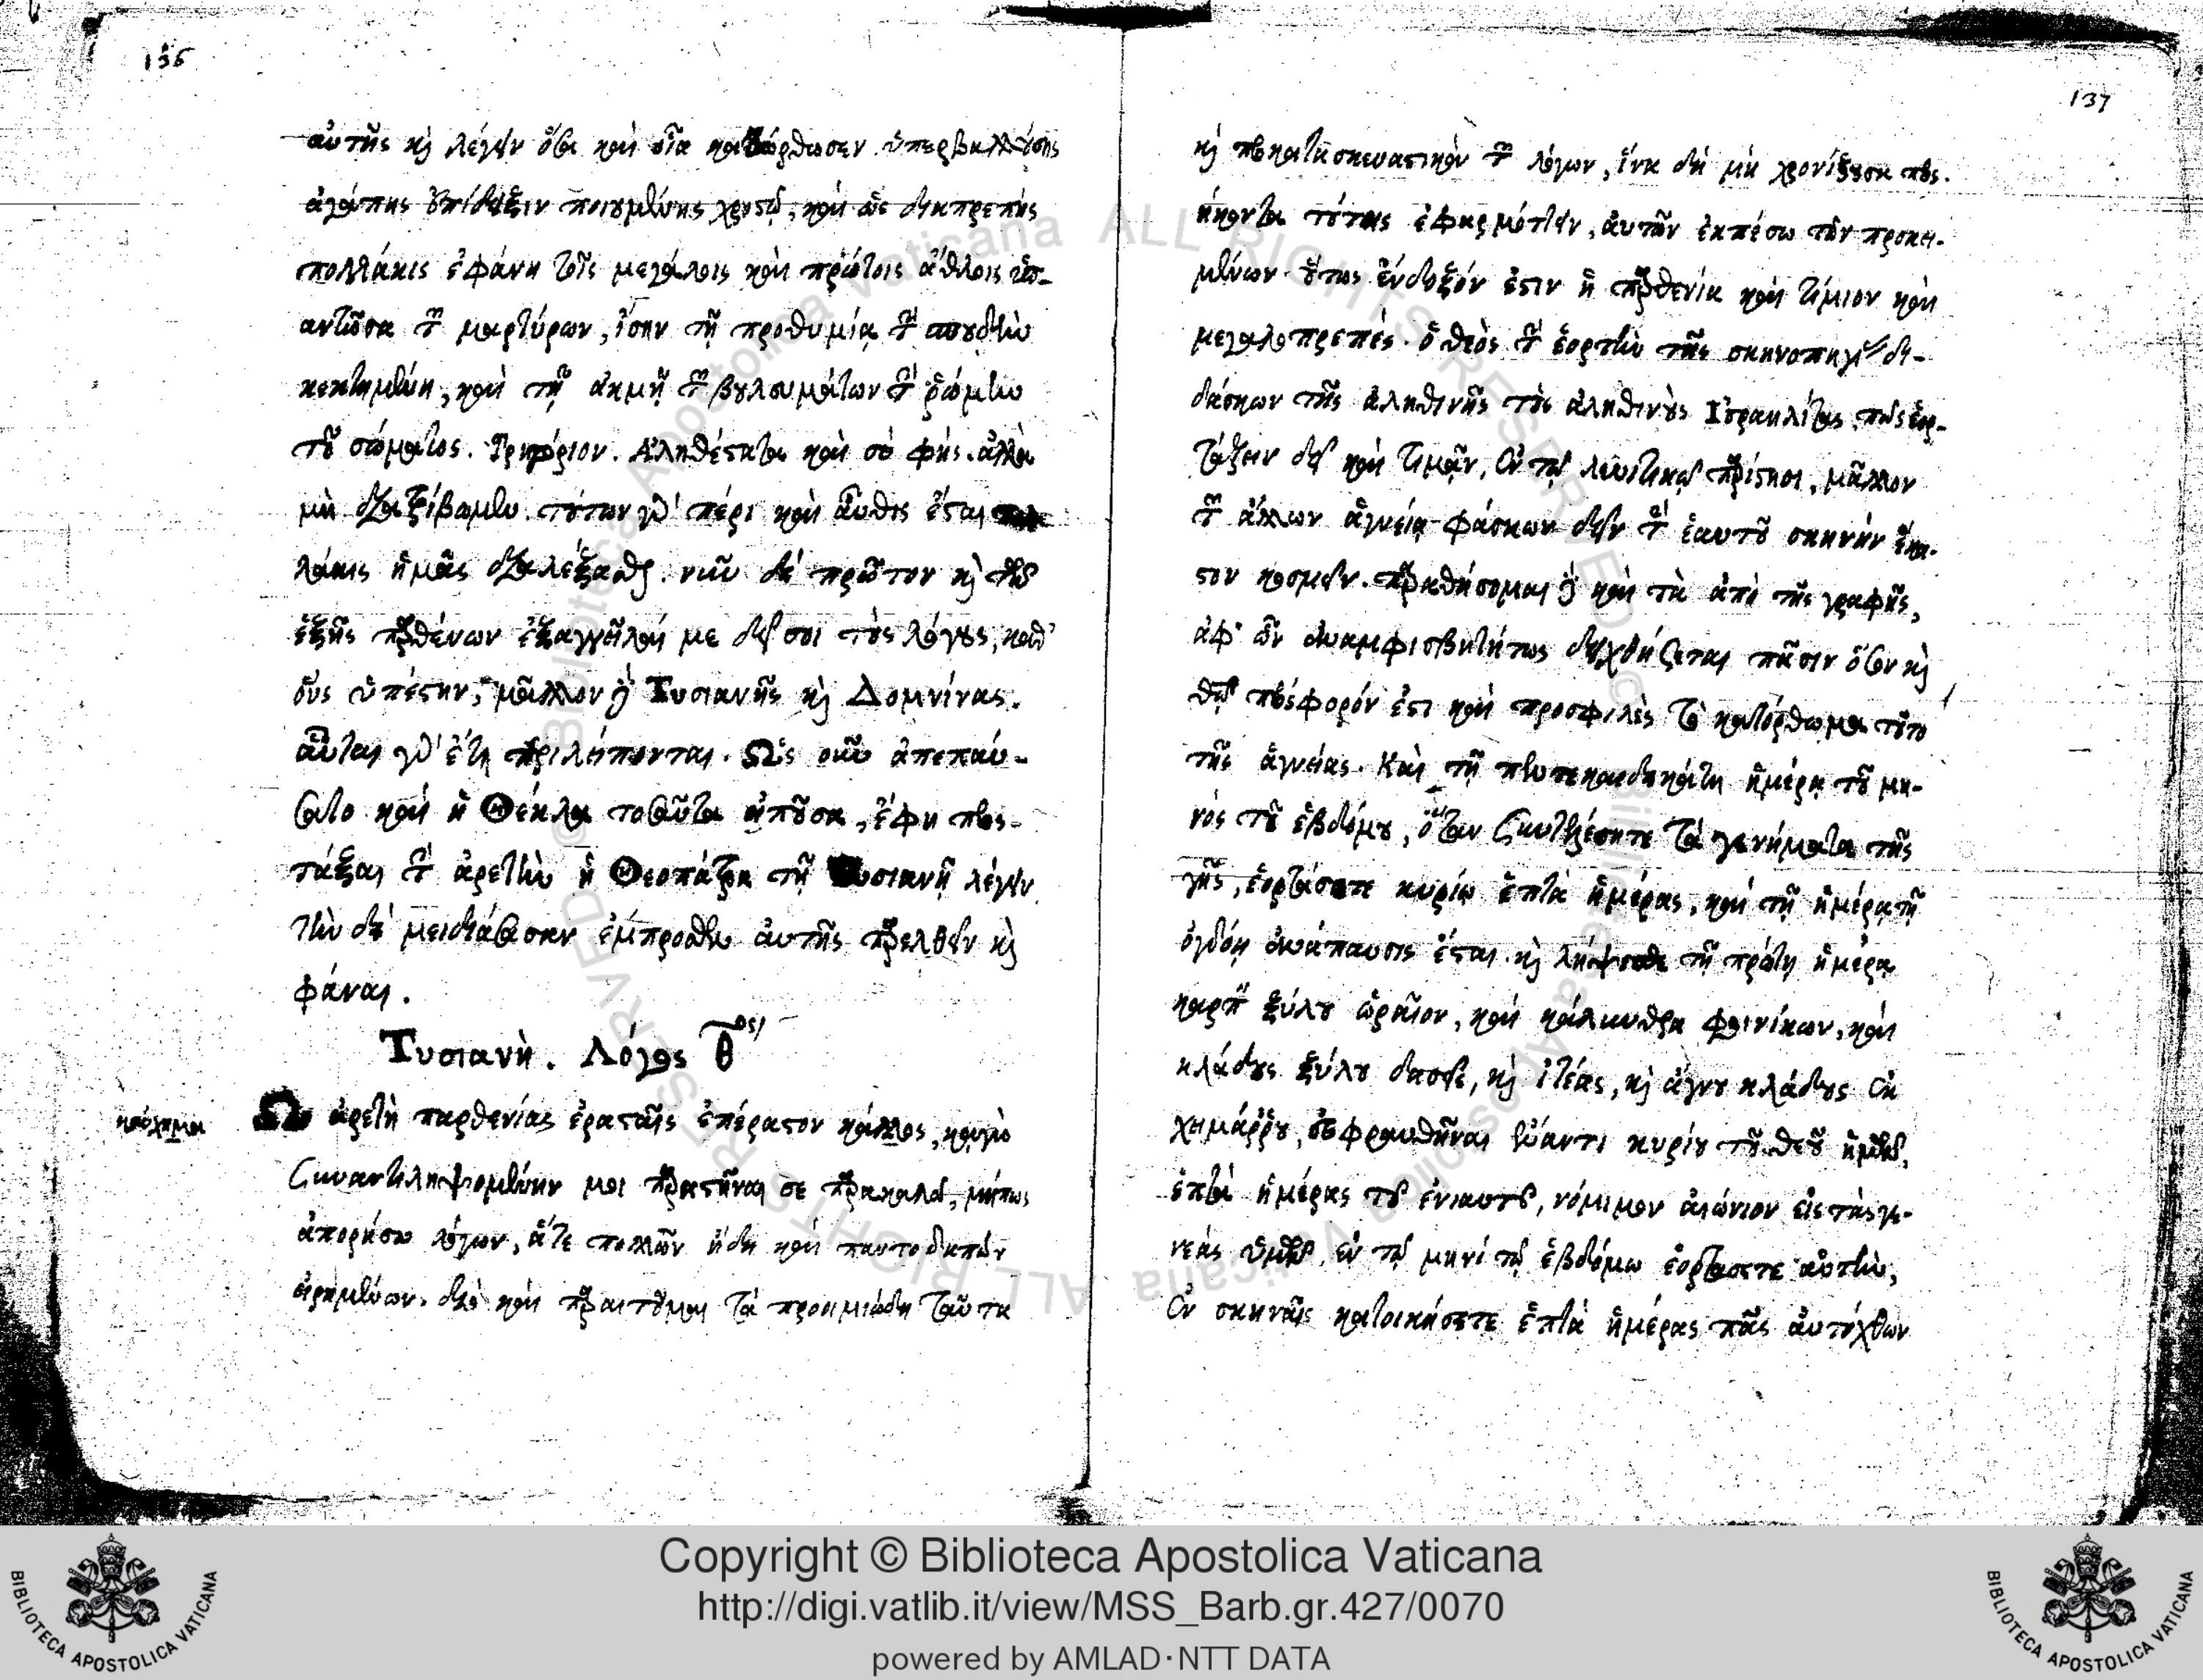 136
αὐτῆς κὶ λέγειν ὅσα καὶ οἷα κατώρθωσεν ὑπερβαλλούσης
ἀγάπης ἐπίδειξιν ποιουμένης χριστῷ, καὶ ὡς διαπρεπὴς
πολλάκις ἐφάνη τοῖς μεγάλοις καὶ πρώτοις ἄθλοις ὑπ-
αντῶσα τῶν μαρτύρων, ἴσην τῇ προθυμίᾳ τὴν σπουδὴν
κεκτημένη, καὶ τῇ ἀκμῇ τῶν βουλευμάτων τὴν ῥώμην
τοῦ σώματος. Γρηγόριον. Ἀληθέστατα καὶ σὺ φῄς. ἀλλὰ
μὴ διατρίβωμεν. τούτων γὰρ πέρι καὶ αὖθις ἔσται πολ-
λάκις ἡμᾶς διαλέξασθαι. νῦν δὲ πρῶτον κὶ τῶν
ἑξῆς παρθένων ἐξαγγεῖλαί με δεῖ σοι τοὺς λόγους, καθ'
οὓς ὑπέστην, μᾶλλον δὲ Τυσιανῆς κὶ Δομνίνας.
αὗται γὰρ ἔτι περιλείπονται. Ὡς οὖν ἀπεπαύ-
σατο καὶ ἡ Θέκλα τοσαῦτα εἰποῦσα, ἔφη προς-
τάξαι τὴν ἀρετὴν ἡ Θεοπάτρα τῇ Τυσιανῇ λέγειν
τὴν δὲ μειδιάσασαν ἔμπροσθεν αὐτῆς παρελθεῖν κὶ
φάναι.
Τυσιανὴ. Λόγος θος
καύχημα
Ὦ ἀρετὴ παρθενίας ἐρασταῖς ἐπέραστον κάλλος, κἀγὼ
συναντιληψομένην μοι παραστῆναί σε παρακαλῶ, μήπως
ἀπορήσω λόγων, ἅτε πολλῶν ἤδη καὶ παντοδαπῶν
εἰρημένων. διὸ καὶ παραιτοῦμαι τὰ προοιμιώδη ταῦτα
137
κὶ προκατασκευαστικὸν τῶν λόγων, ἵνα δὴ μὴ χρονίζουσα προς-
ήκοντα τούτοις ἐφαρμόττειν, αὐτῶν ἐκπέσω τῶν προκει-
μένων. οὕτως ἔνδοξόν ἐστιν ἡ παρθενία καὶ τίμιον καὶ
μεγαλοπρεπές. ὁ θεὸς τὴν ἑορτὴν τῆς σκηνοπηγίας δι-
δάσκων τῆς ἀληθινῆς τοὺς ἀληθινοὺς Ἰσραηλίτας πῶς ἑορ-
τάζειν δεῖ καὶ τιμᾶν, ἐν τῷ λευιτικῷ παρίστησι, μᾶλλον
τῶν ἄλλων ἁγνείᾳ φάσκων δεῖν τὴν ἑαυτοῦ σκηνὴν ἕκα-
στον κοσμεῖν. παραθήσομαι δὲ καὶ τὰ ἀπὸ τῆς γραφῆς,
ἀφ' ὧν ἀναμφισβητήτως δειχθήσεται πᾶσιν ὅσον κὶ
θεῷ πρόσφορόν ἐστι καὶ προσφιλὲς τὸ κατόρθωμα τοῦτο
τῆς ἁγνείας. Καὶ τῇ πεντεκαιδεκάτῃ ἡμέρᾳ τοῦ μη-
νὸς τοῦ ἑβδόμου, ὅταν συντελέσητε τὰ γενήματα τῆς
γῆς, ἑορτάσατε κυρίῳ ἑπτὰ ἡμέρας, καὶ τῇ ἡμέρᾳ τῇ
ὀγδόῃ ἀνάπαυσις ἔσται. κὶ λήψεσθε τῇ πρώτῃ ἡμέρᾳ
καρπὸν ξύλου ὡραῖον, καὶ κάλλυνθρα φοινίκων, καὶ
κλάδους ξύλου δασεῖς, κὶ ἰτέας, κὶ ἄγνου κλάδους ἐκ
χειμάρρου, εὐφρανθῆναι ἔναντι κυρίου τοῦ θεοῦ ἡμῶν,
ἑπτὰ ἡμέρας τοῦ ἐνιαυτοῦ, νόμιμον αἰώνιον εἰς τὰς γε-
νεὰς ὑμῶν. ἐν τῷ μηνὶ τῷ ἑβδόμῳ ἑορτάσετε αὐτὴν,
ἐν σκηναῖς κατοικήσετε ἑπτὰ ἡμέρας πᾶς αὐτόχθων
Copyright © Biblioteca Apostolica Vaticana
http://digi.vatlib.it/view/MSS_Barb.gr.427/0070
powered by AMLAD·NTT DATA
BIBLIOTECA APOSTOLICA VATICANA
BIBLIOTECA APOSTOLICA VATICANA